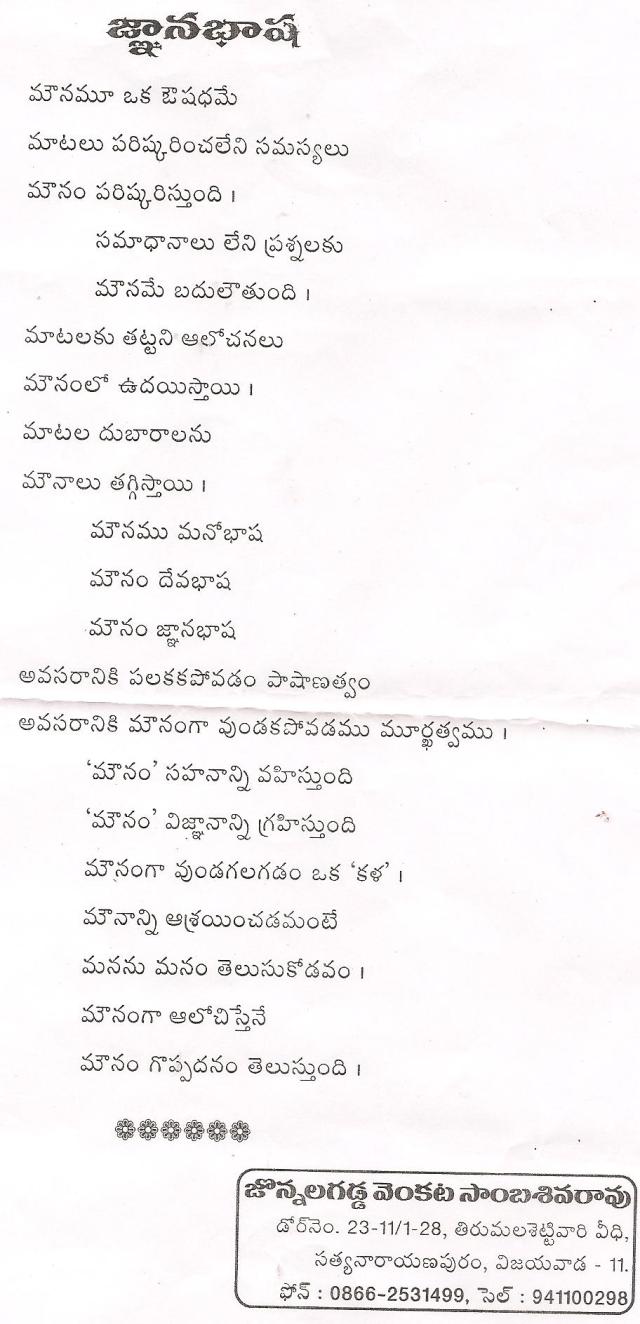 జ్ఞానభాష
మౌనమూ ఒక ఔషధమే
మాటలు పరిష్కరించలేని సమస్యలు
మౌనం పరిష్కరిస్తుంది ।
సమాధానాలు లేని ప్రశ్నలకు
మౌనమే బదులౌతుంది ।
మాటలకు తట్టని ఆలోచనలు
మౌనంలో ఉదయిస్తాయి ।
మాటల దుబారాలను
మౌనాలు తగ్గిస్తాయి ।
మౌనము మనోభాష
మౌనం దేవభాష
మౌనం జ్ఞానభాష
అవసరానికి పలకకపోవడం పాషాణత్వం
అవసరానికి మౌనంగా వుండకపోవడము మూర్ఖత్వము ।
‘మౌనం’ సహనాన్ని వహిస్తుంది
‘మౌనం’ విజ్ఞానాన్ని గ్రహిస్తుంది
మౌనంగా వుండగలగడం ఒక ‘కళ’ ।
మౌనాన్ని ఆశ్రయించడమంటే
మనను మనం తెలుసుకోడవం ।
మౌనంగా ఆలోచిస్తేనే
మౌనం గొప్పదనం తెలుస్తుంది ।
జొన్నలగడ్డ వెంకట సాంబశివరావు
డోర్‌నెం. 23-11/1-28, తిరుమలశెట్టివారి వీధి,
సత్యనారాయణపురం, విజయవాడ - 11.
ఫోన్ : 0866-2531499, సెల్ : 941100298